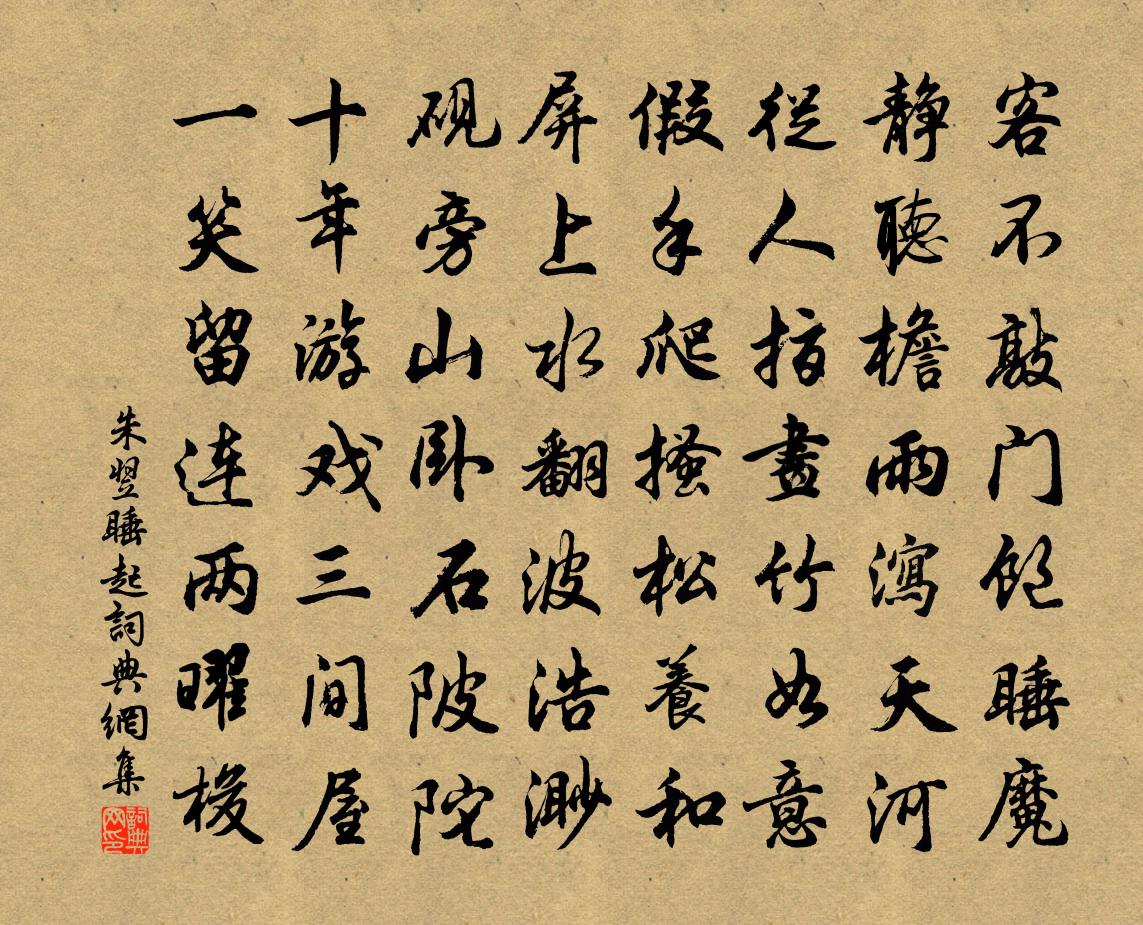 客不敲门饱睡魔
静聽檐雨瀉天河
從人指畫竹如意
假手爬搔松養和
屏上水翻波浩渺
硯旁山卧石陂陀
十年游戏三间屋
一笑留连两曜梭
朱翌睡起詞典網集
詞典网印